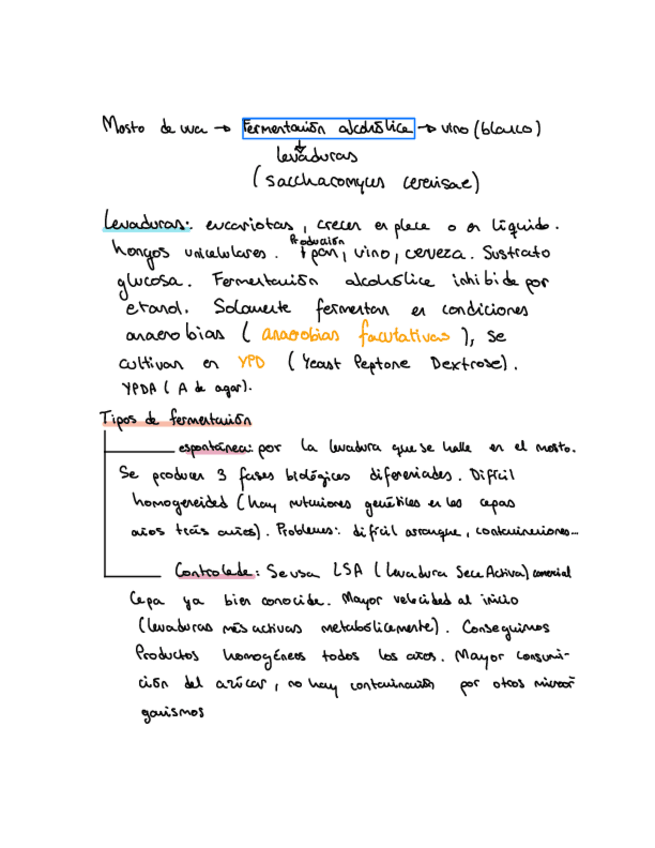 Mosto de uva → Fermentación alcohólica → vino (blanco)
levaduras
(saccharomyces cerevisae)
Levaduras: eucariotas, crecen en placa o en líquido.
Producción
hongos unicelulares. pan, vino, cerveza. Sustrato
glucosa. Fermentación alcohólica inhibida por
etanol. Solamente fermentan en condiciones
anaerobias (anaerobias facultativas), se
cultivan en YPD (Yeast Peptone Dextrose).
YPDA (A de agar).
Tipos de fermentación
espontánea: por la levadura que se halle en el mosto.
Se producen 3 fases biológicas diferenciadas. Difícil
homogeneidad (hay mutaciones genéticas en las cepas
años trás años). Problemas: difícil arranque, contaminaciones...
Controlada: Se usa LSA (Levadura Seca Activa) comercial
Cepa ya bien conocida. Mayor velocidad al inicio
(levaduras más activas metabólicamente). Conseguimos
Productos homogéneos todos los años. Mayor consumi-
ción del azúcar, no hay contaminación por otros microor
ganismos